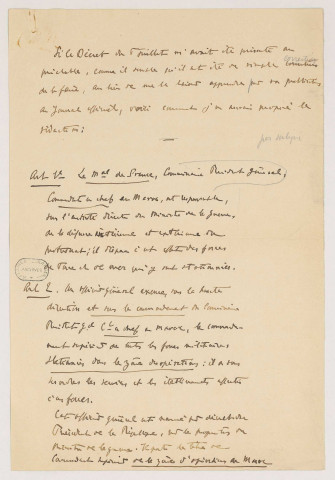 Si le Décret du Juillet m'avait été présenté au
préalable, comme il semble qu'il eut été de simple
au lieu de me le laisser apprendre par sa publication
au Journal officiel, voici comment j'en aurais proposé la
rédaction :
Art. 1er Le Mal de France, Commissaire Résident général,
Commandant en chef au Maroc, est responsable,
sous l'autorité directe du Ministre de la guerre,
de la défense intérieure et extérieure du
Protectorat ; il dispose à cet effet des forces
de terre et de mer qui y sont stationnées.
Art. 2. Un officier général exerce, sous la haute
direction et sous le commandement du Commissaire
Résident gal Ct en chef au Maroc, le commande-
ment supérieur de toutes les forces militaires
stationnées dans la zone d'opérations : il a sous
ses ordres les services et les éléments affectés
à ces forces.
Cet officier général est nommé par décret du
Président de la République, sur la proposition du
Ministre de la guerre. Il porte le titre de
Commandant supérieur de la zone d'opérations au Maroc